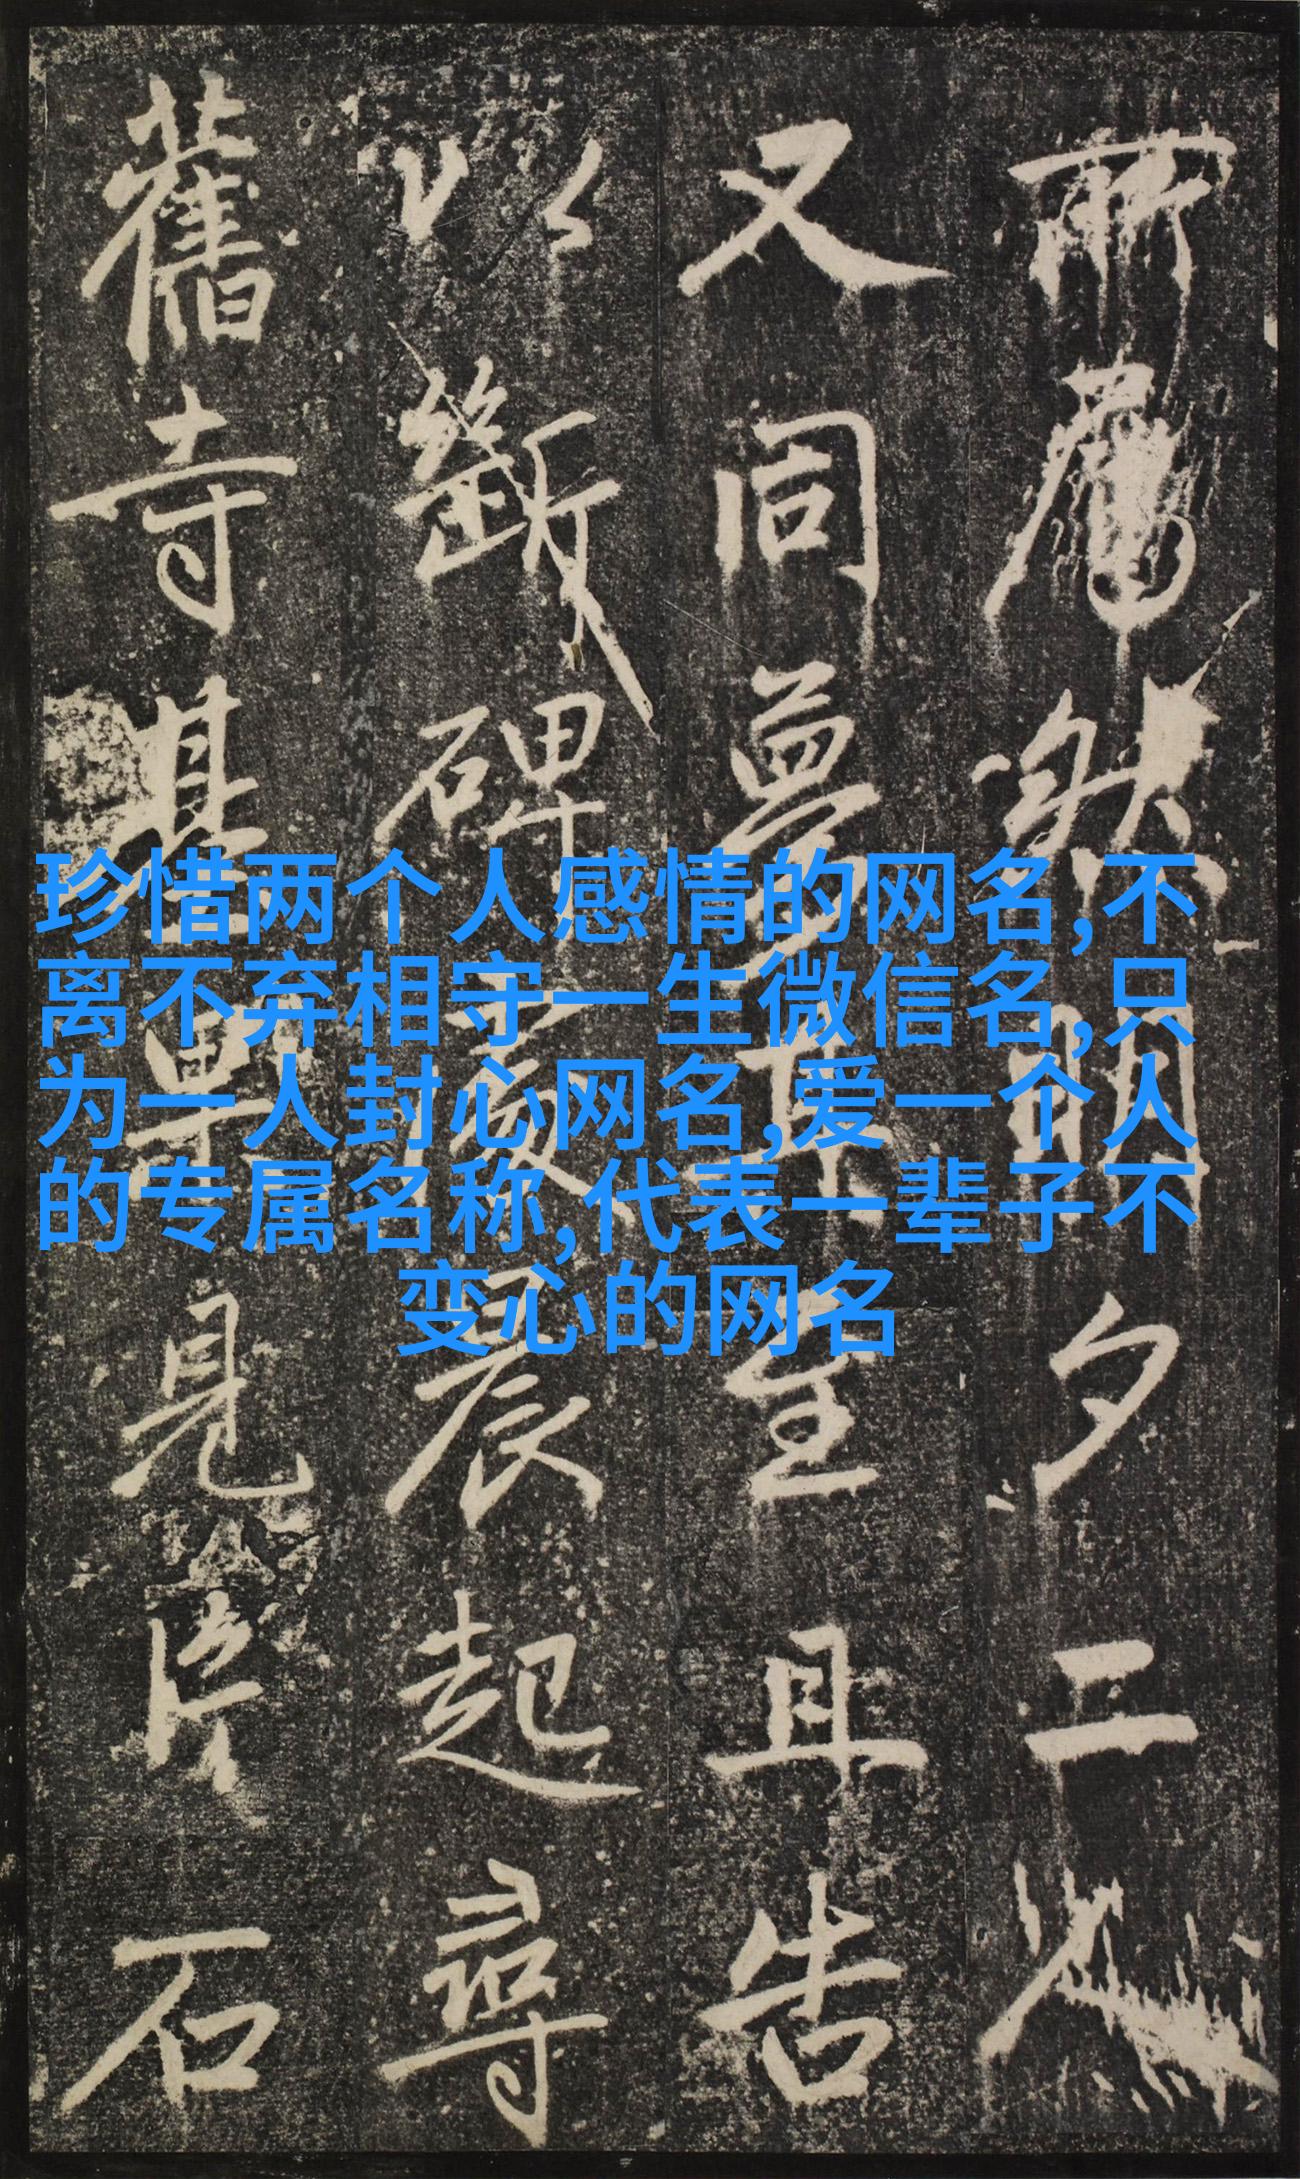 珍惜两个人感情的网名,不
离不弃相守一生微信名,只
为一人封心网名,爱一个人
的专属名称,代表一辈子不
变心的网名
所然明夕二
又同夢其至且告
以斷碑處晨起尋
舊寺基見片石